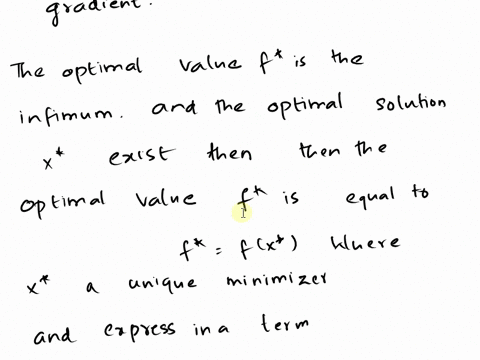 gradient.
The optimal value f* is the
infimum. and the optimal solution
x* exist then then the
optimal value f* is equal to
f* = f(x*) Where
x* a unique minimizer
and express in a term